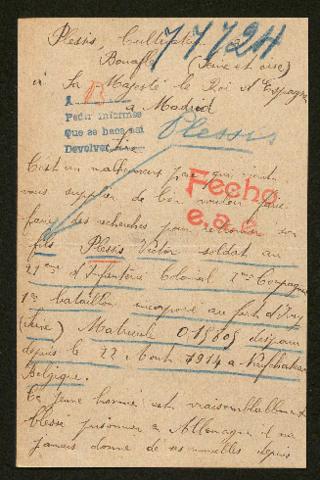 Plessis, Cultivateur à
77724
Bouafle (Seine et oise)
à Sa Majesté le Roi d'Espagne
à Madrid
1
Pedir informes
Que se haga así
Devolver
Sire
Plessis
C'est un malheureux père qui vient
vous supplier de bien vouloir faire
Fecho
e.a.c.
faire des recherches pour retrouver son
fils Plessis Victor soldat au
21ème d'Infanterie Colonial 1ère Compagnie
1er bataillon incorporé au fort d'Ivry
(Seine) Matricule 015605 disparu
depuis le 22 Aout 1914 a Neufchateau
Belgique.
Ce jeune homme est vraisemblablement
blessé prisonnier en Allemagne il n'a
jamais donné de ses nouvelles depuis